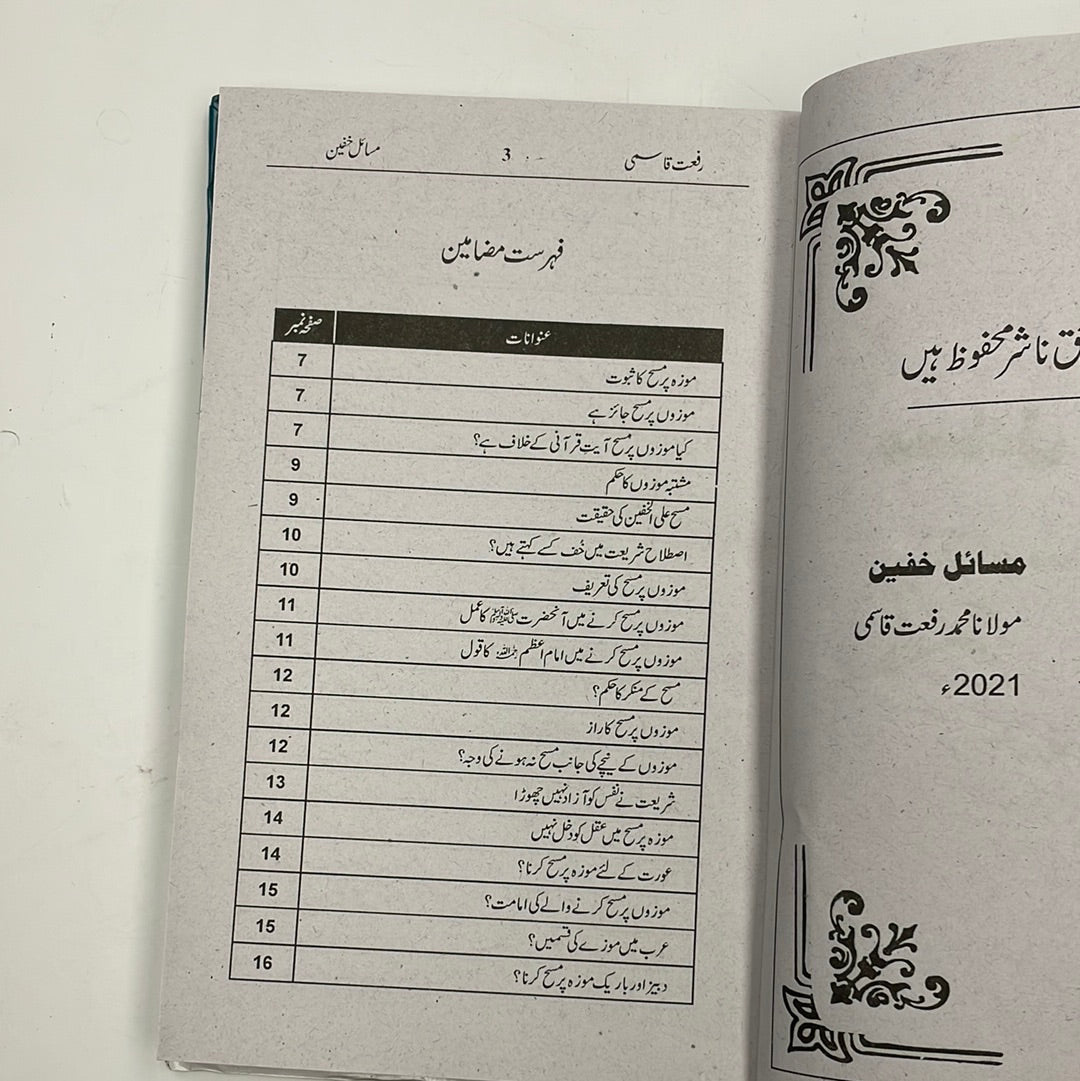 ناشر محفوظ ہیں
مسائل خفین
مولانا محمد رفعت قاسمی
2021ء
رفعت قاسمی 3 مسائل خفین
فہرست مضامین
عنوانات صفحہ نمبر
موزہ پر مسح کا ثبوت 7
موزوں پر مسح جائز ہے 7
کیا موزوں پر مسح آیتِ قرآنی کے خلاف ہے؟ 7
مشتبہ موزوں کا حکم 9
مسح علی الخفین کی حقیقت 9
اصطلاح شریعت میں خُف کسے کہتے ہیں؟ 10
موزوں پر مسح کی تعریف 10
موزوں پر مسح کرنے میں آنحضرت ﷺ کا عمل 11
موزوں پر مسح کرنے میں امام اعظم رحمہ اللہ کا قول 11
مسح کے منکر کا حکم؟ 12
موزوں پر مسح کا راز 12
موزوں کے نیچے کی جانب مسح نہ ہونے کی وجہ؟ 12
شریعت نے نفس کو آزاد نہیں چھوڑا 13
موزہ پر مسح میں عقل کو دخل نہیں 14
عورت کے لئے موزہ پر مسح کرنا؟ 14
موزوں پر مسح کرنے والے کی امامت؟ 15
عرب میں موزے کی قسمیں؟ 15
دبیز اور باریک موزہ پر مسح کرنا؟ 16